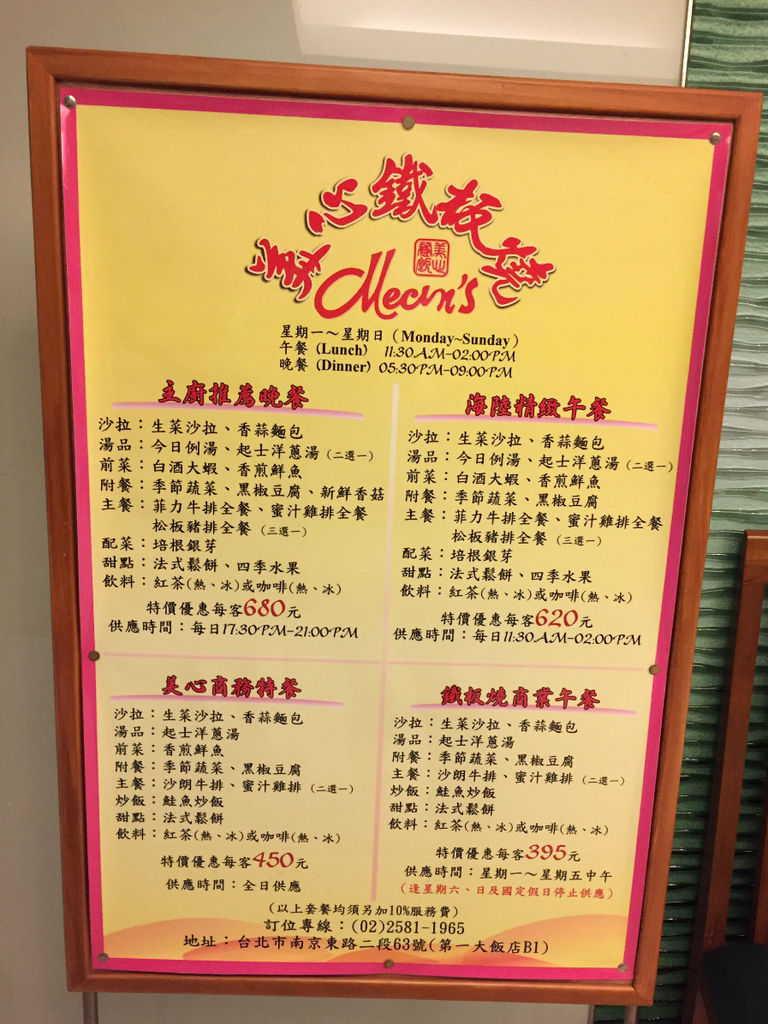 美心鐵板燒
美心鐵板燒
Mecin's
星期一～星期日（Monday~Sunday）
午餐 (Lunch) 11:30AM-02:00PM
晚餐 (Dinner) 05:30PM-09:00PM
主廚推薦晚餐
沙拉：生菜沙拉、香蒜麵包
湯品：今日例湯、起士洋蔥湯（二選一）
前菜：白酒大蝦、香煎鮮魚
附餐：季節蔬菜、黑椒豆腐、新鮮香菇
主餐：菲力牛排全餐、蜜汁雞排全餐
松板豬排全餐（三選一）
配菜：培根銀芽
甜點：法式鬆餅、四季水果
飲料：紅茶(熱、冰)或咖啡(熱、冰)
特價優惠每客680元
供應時間：每日17:30PM-21:00PM
海陸精緻午餐
沙拉：生菜沙拉、香蒜麵包
湯品：今日例湯、起士洋蔥湯（二選一）
前菜：白酒大蝦、香煎鮮魚
附餐：季節蔬菜、黑椒豆腐
主餐：菲力牛排全餐、蜜汁雞排全餐
松板豬排全餐（三選一）
配菜：培根銀芽
甜點：法式鬆餅、四季水果
飲料：紅茶(熱、冰)或咖啡(熱、冰)
特價優惠每客620元
供應時間：每日11:30AM-02:00PM
美心商務特餐
沙拉：生菜沙拉、香蒜麵包
湯品：起士洋蔥湯
前菜：香煎鮮魚
附餐：季節蔬菜、黑椒豆腐
主餐：沙朗牛排、蜜汁雞排（二選一）
炒飯：鮭魚炒飯
甜品：法式鬆餅
飲料：紅茶(熱、冰)或咖啡(熱、冰)
特價優惠每客450元
供應時間：全日供應
鐵板燒商業午餐
沙拉：生菜沙拉、香蒜麵包
湯品：起士洋蔥湯
附餐：季節蔬菜、黑椒豆腐
主餐：沙朗牛排、蜜汁雞排（二選一）
炒飯：鮭魚炒飯
甜點：法式鬆餅
飲料：紅茶(熱、冰)或咖啡(熱、冰)
特價優惠每客395元
供應時間：星期一～星期五中午
（逢星期六、日及國定假日停止供應）
（以上套餐均須另加10%服務費）
訂位專線：(02)2581-1965
地址：台北市南京東路二段63號(第一大飯店B1)